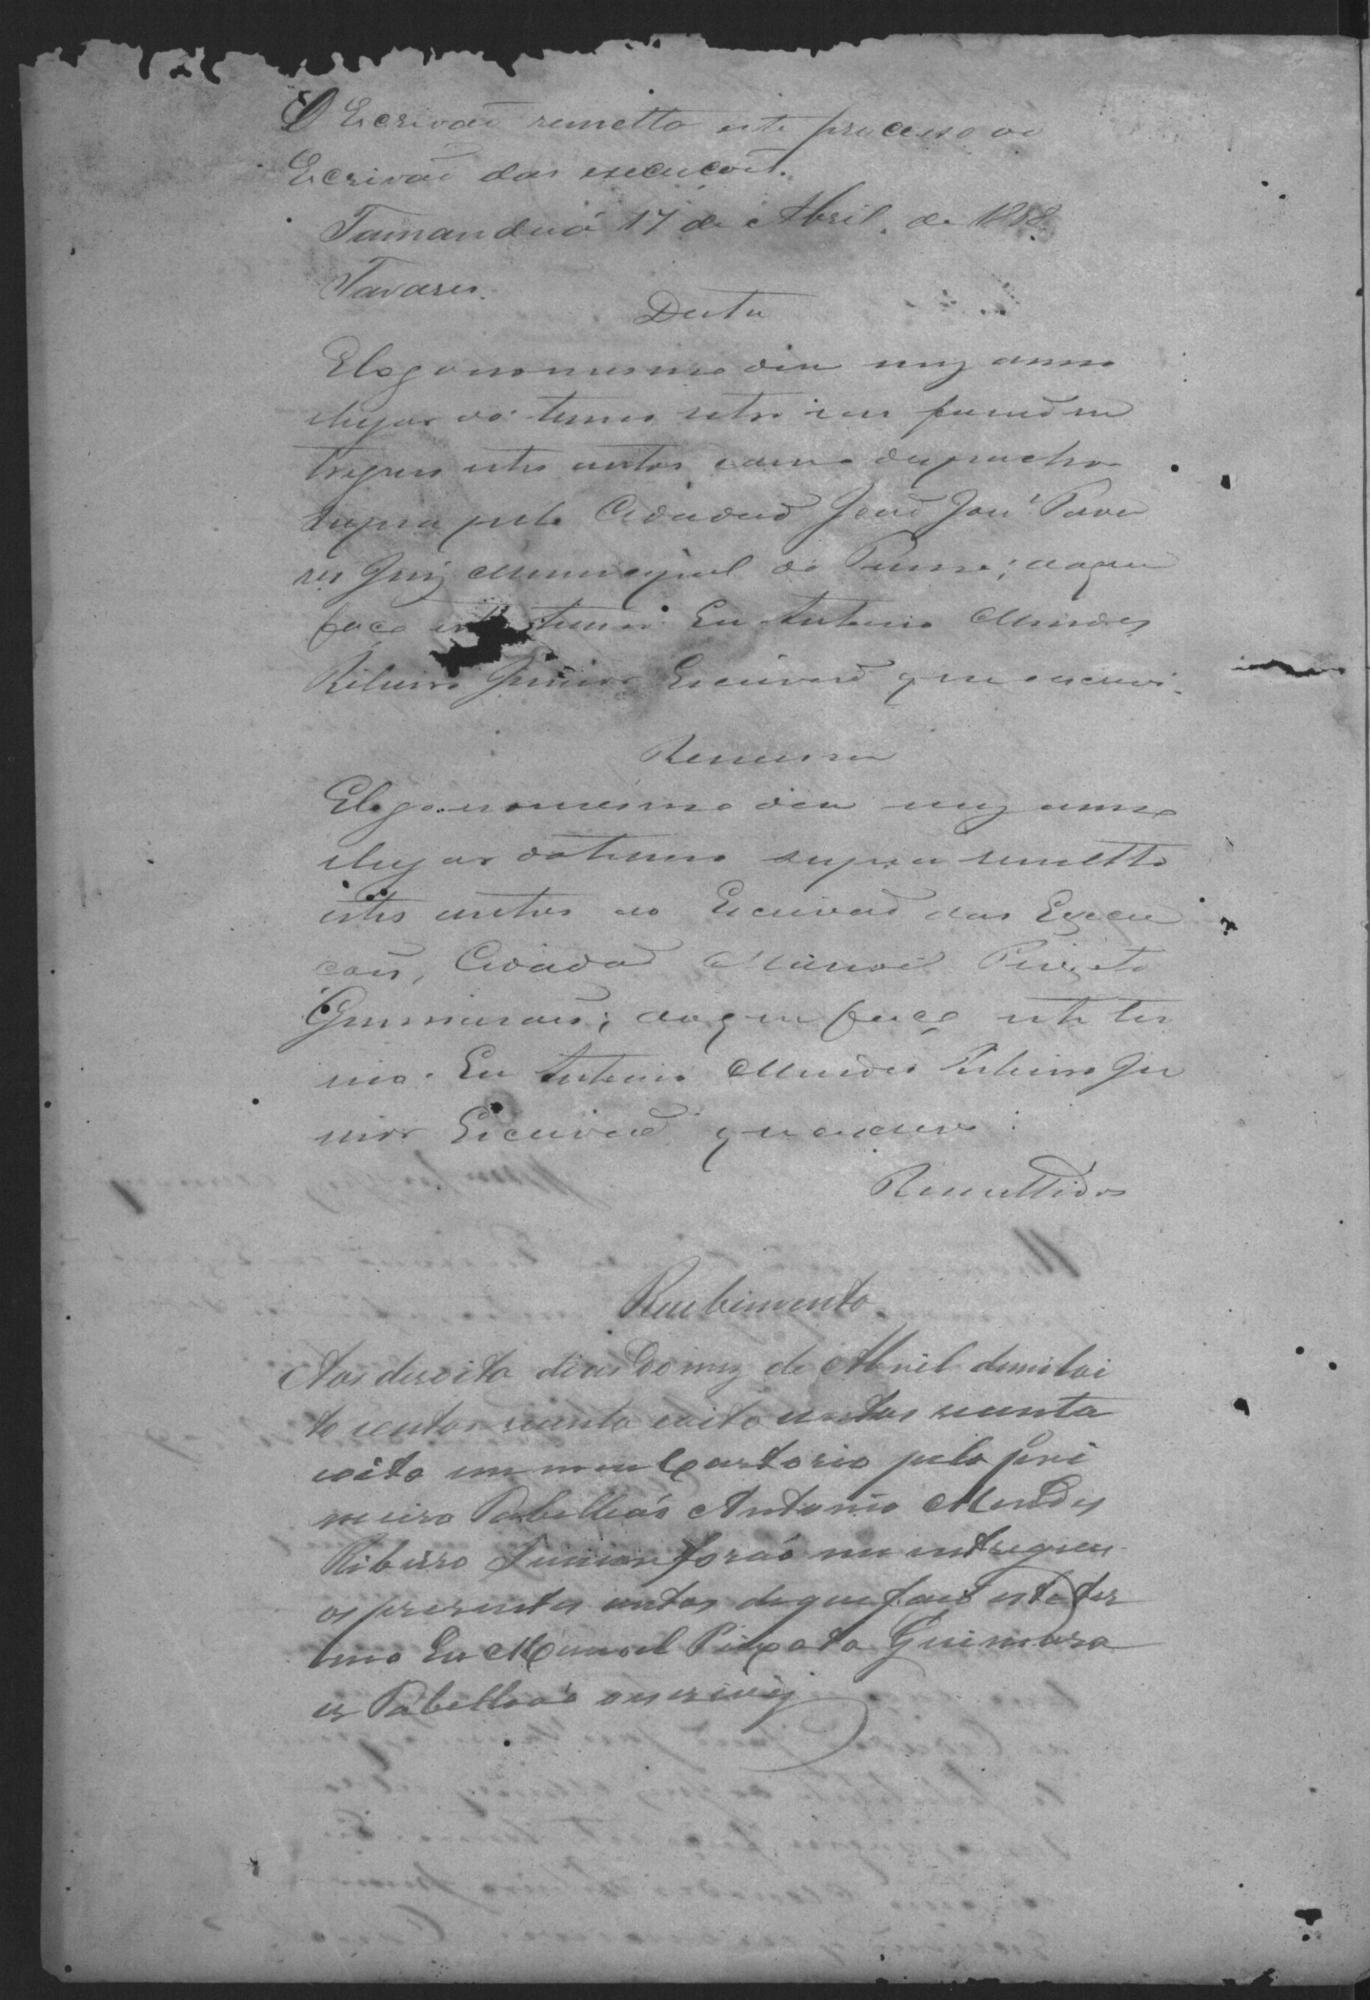 O Escrivaõ remetta este processo ao
Escrivaõ das execucoẽs.
Tamanduá 17 de Abril de 1888
Tavares.
Data
E logo no mesmo dia mez anno
e lugar do termo retro me foraõ en
tregues estes autos com o despacho
supra pelo Cidadaõ Joaõ José Tava
res Juiz Municipal do Termo; do que
faço este termo. Eu Antonio Mendes
Ribeiro Junior Escrivaõ que escrevi.
Remessa
E logo no mesmo dia mez anno
e lugar do termo supra remetto
estes autos ao Escrivaõ das Execu
coẽs, Cidadaõ Manoel Peixoto
Guimaraẽs; do que faço este ter
mo. Eu Antonio Mendes Ribeiro Ju
nior Escrivaõ que escrevi.
Remettidos
Recebimento
Aos desoito dias do mez de Abril de mil oi
to centos oitenta e oito
oito em meu Cartorio pelo pri
meiro Tabelliaõ Antonio Mendes
Ribeiro Junior foraõ me entregues
os presentes autos de que faço este ter
mo Eu Manoel Peixoto Guimara
es Tabelliaõ o escrevi